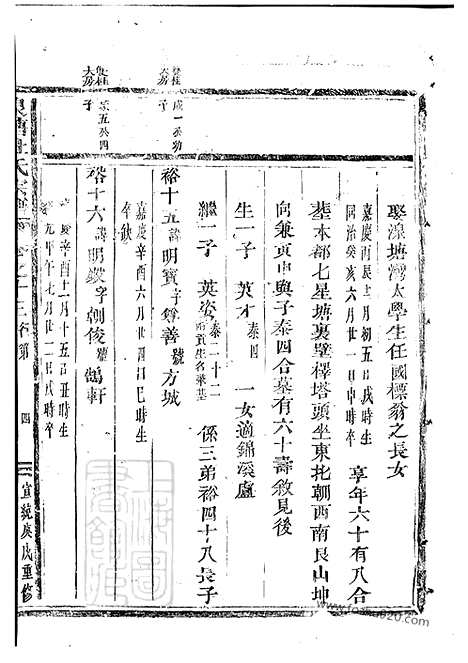 娶湶塘灣太學生任國標翁之長女
嘉慶丙辰十月初五日戌時生
同治癸亥六月廿一日申時卒
享年六十有八合
塟本都七星塘裏壁檡塔頭坐東北朝西南艮山坤
向兼寅申與子泰四合墓有六十壽敘見後
生一子 英才 泰四 一女適錦溪盧
繼一子 英姿 泰一十二 係三弟裕四十八長子
裕十五 諱明寶字尊善號方城
嘉慶辛酉六月廿四日巳時生
卒缺
裕十六 諱明鍐字朝俊號鶴軒
嘉慶辛酉十一月十五日丑時生
甲午七月廿二日戌時卒
四
宣統庚戌重修